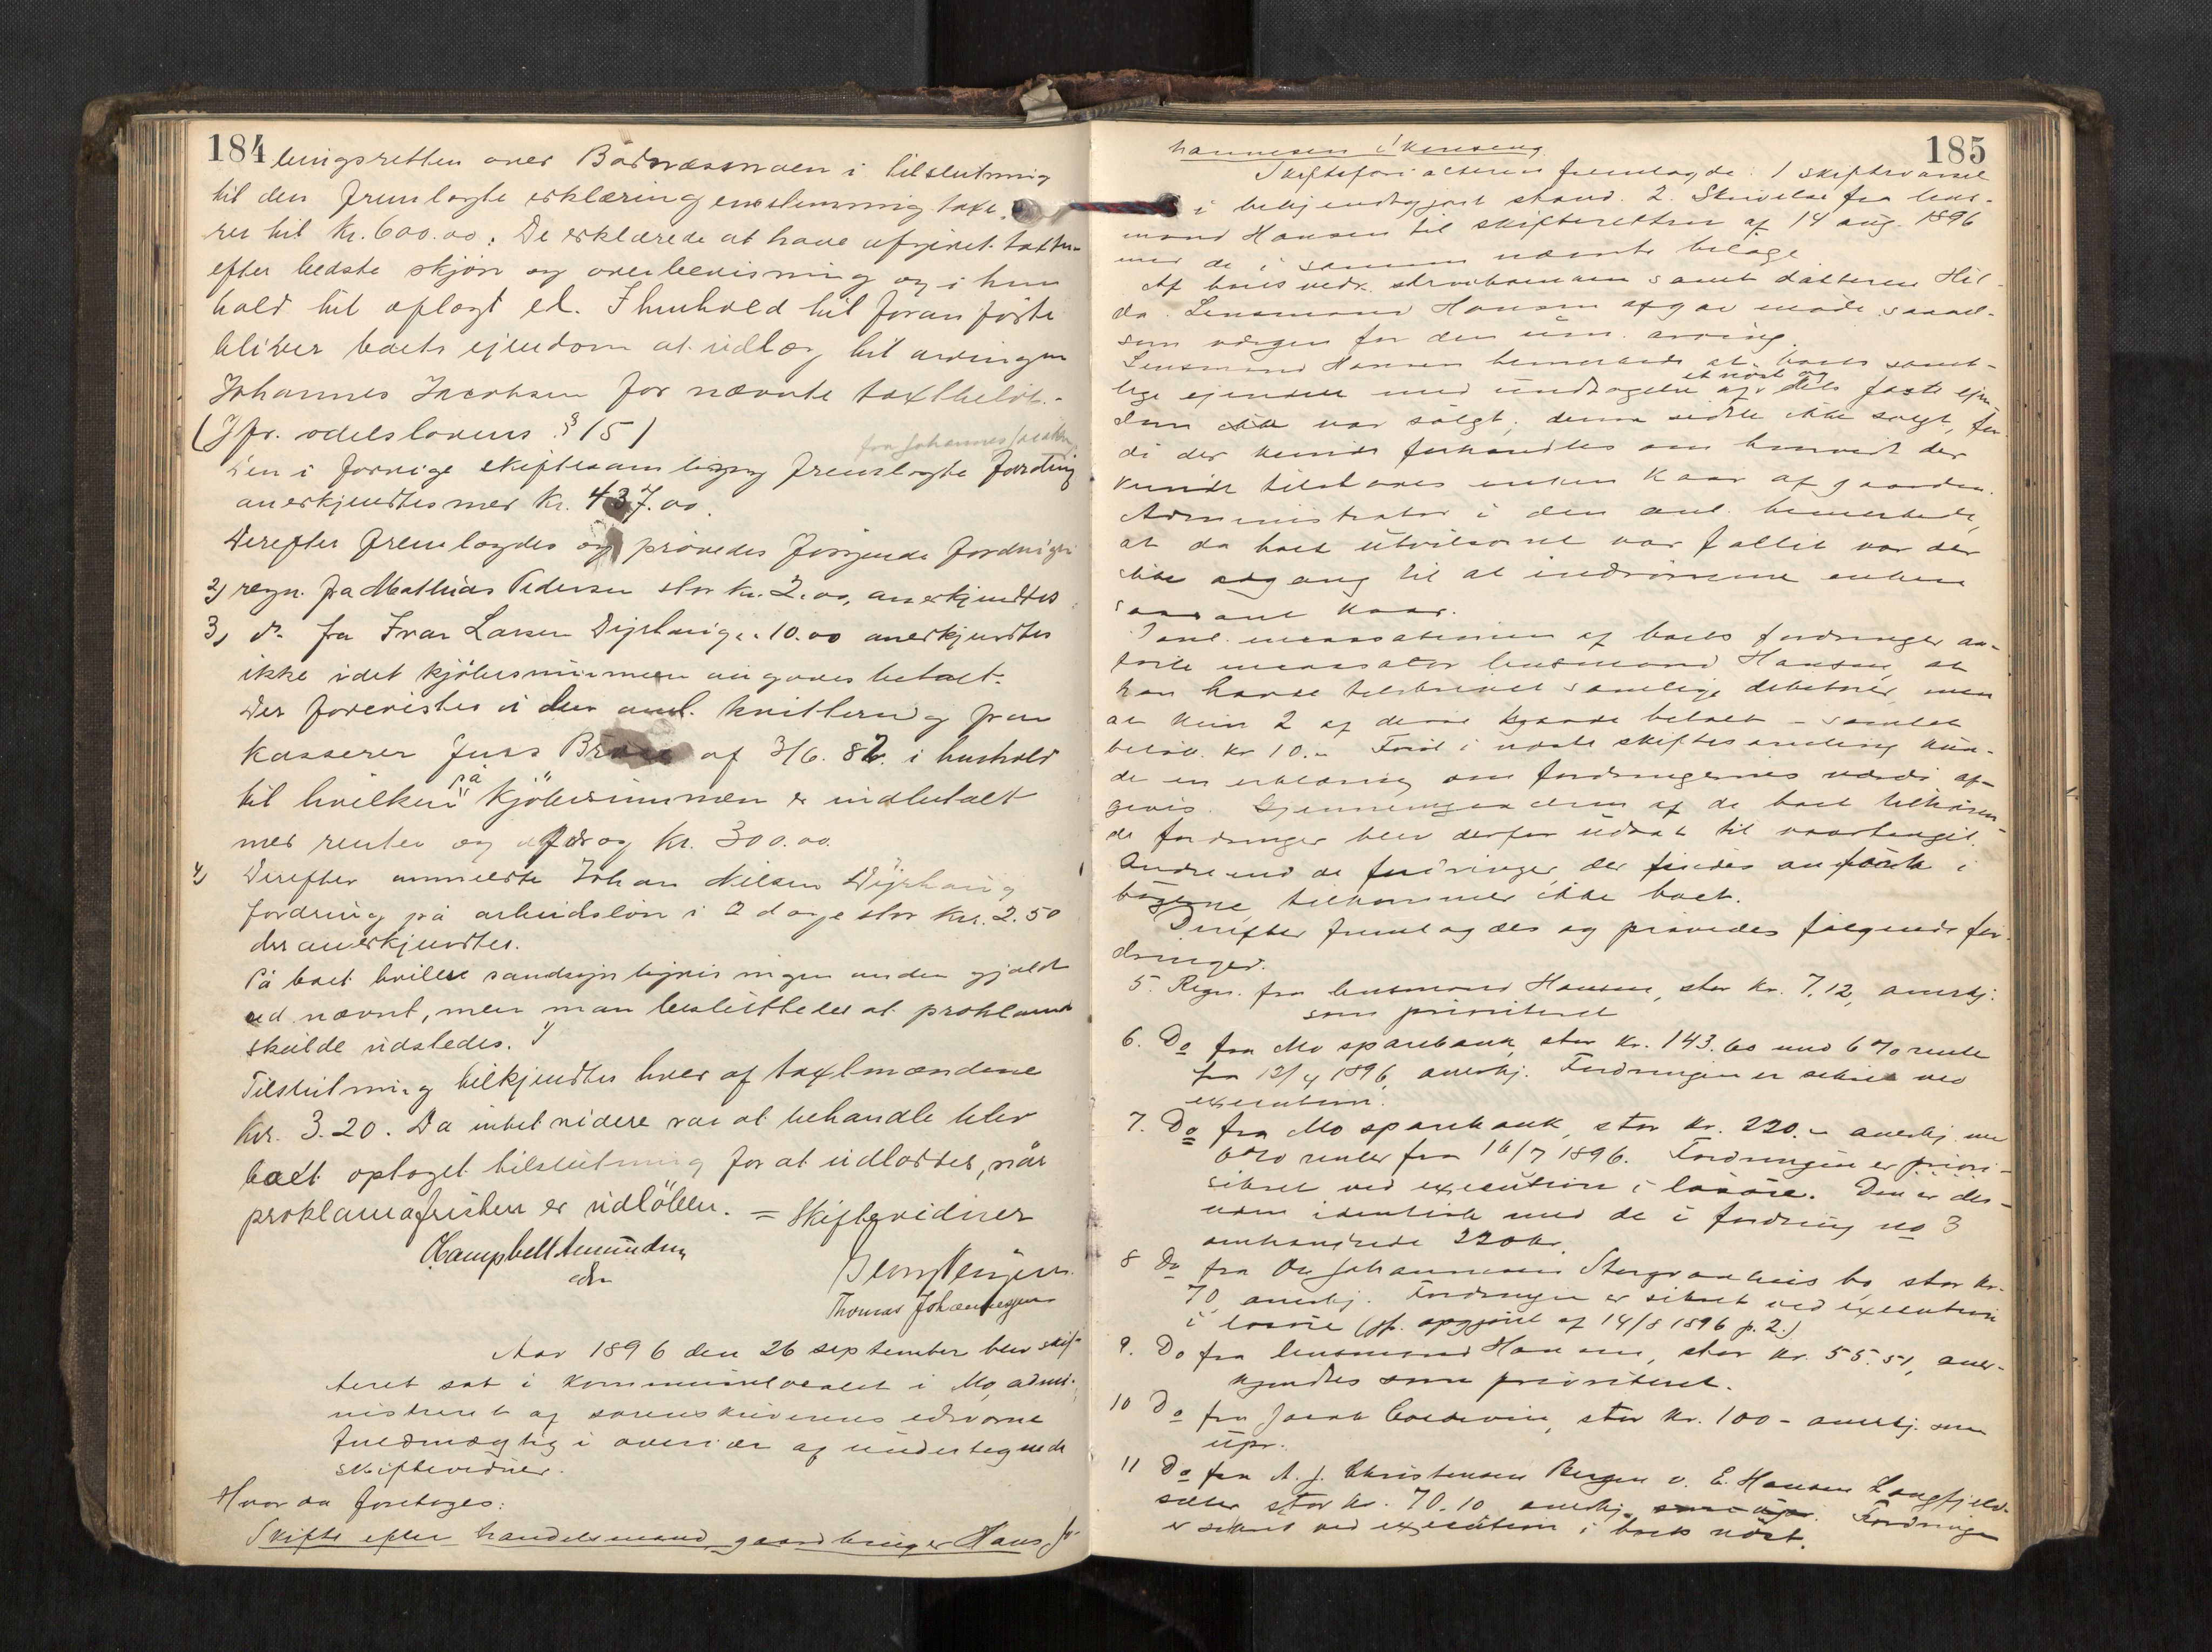 184
lingsretten over Baadnæsmoen i tilslutning
til den fremlagte erklæring enstemmig taxe-
res til Kr. 600.00. De erklærede at have afgivet taxten
efter bedste skjøn og overbevisning og i hen
hold til aflagt ed. I henhold til foranførte
bliver boets ejendom at udlægge til arvingen
Johannes Jacobsen for nævnte taxtbeløb.-
(Jfr. odelslovens § 15)
fra Johannes Jacobsen
Den i forrige skiftesamling fremlagte fordring
anerkjendtes med Kr. 437.00.
Derefter fremlagdes og prøvedes følgende fordringer
2) regn. fra Mathias Pedersen stor Kr. 2.00, anerkjendtes
3) do. fra Ivar Larsen Dyrhaug 10.00 anerkjendtes
ikke idet kjøbesummen angaves betalt.
Der forevistes i den anl. kvittering fra
Kasserer Jens af 3/6. 82. i henhold
til hvilken på kjøbesummen er indbetalt
med renter og afdrag Kr. 300.00.
4) Derefter anmeldte Johan Nilsen Dyrhaug
fordring på arbeidsløn i 2 dage stor Kr. 2.50
der anerkjendtes.
På boet hviler sandsynligvis ingen anden gjæld
end nævnt, men man besluttedes at proklama
skulde udstedes.
Tilslutning tilkjendtes hver af taxtmændene
Kr. 3.20. Da intet videre var at behandle blev
boet optaget til slutning for at udloddes, når
proklamafristen er udløben. = Skiftevidner
O Campbell Amundsen
edsv
Thomas Johannessen
Aar 1896 den 26 september blev skif-
teret sat i Kommunelocalet i Mo, admi-
nistreret af sorenskriverens edsvorne
fuldmægtig i overvær af undertegnede
skiftevidner.
Hvor da foretoges:
Skifte efter handelsmand, gaardbruger Hans Jo-
185
hannesen
Skifteforvalteren fremlagde: 1 skiftevarsel
i bekjendtgjort stand. 2. Skrivelse fra lens-
mand Hansen til skifteretten af 14 aug. 1896
med de i samme nævnte bilage.
Af boets vedk. enken samt datteren Hil-
da. Lensmand Hansen afgav møde saavel-
som værgen for den um. arving.
Lensmand Hansen bemærkede at boets samt-
et nøst og
lige ejendele med undtagelse af dets faste ejen-
dom var solgt; denne sidste ikke solgt, for-
di der kunde forhandles om hvorvidt der
kunde tilstaaes enken Kaar af gaarden.
Administrator i den anl. bemærkede,
at da boet utvilsomt var fallit var der
ikke adgang til at indrømme enken
saadant kaar.
I anl. incassationen af boets fordringer an-
førte incassator lensmand Hansen, at
han havde tilskrevet samtlige debitorer, men
at kun 2 af disse havde betalt – samlet
beløb kr 10.- Først i næste skiftesamling kun-
de en erklæring om fordringernes værdi af-
gives. Gjennemgaaelsen af de boet tilhøren-
de fordringer blev derfor udsat til
Andre end de fordringer, der findes anførte i
bøgerne, tilkommer ikke boet.
Derefter fremlagdes og prøvedes følgende for-
dringer.
5. Regn. fra lensmand Hansen, stor kr. 7.12, anerkj.
som prioriteret
6. Do fra Mo sparebank, stor kr. 143.60 med 6% rente
fra 12/4 1896, anerkj. Fordringen er sikret ved
execution.
7. Do fra Mo sparebank, stor kr. 220.- anerkj. med
6% renter fra 16/7 1896. Fordringen er
sikret ved execution i løsøre. Den er des-
uden identisk med de i fordring no 3
omhandlede 220 kr.
8 Do fra Ole Johannesen bo, stor kr.
70, anerkj. Fordringen er sikret ved execution
i løsøre (jfr. opgjøret af 14/8 1896 p. 2.)
9. Do fra lensmand Hansen, stor kr. 55.51, aner-
kjendtes som prioriteret.
10 Do fra Jacob, stor kr. 100 - anerkj. som
upr.
11 Do fra A. J. Christensen Bergen v. E. Hansen Langfjeld-
sæter stor kr. 70.10 anerkj. som upr. Fordringen
er sikret ved execution i boets nøst.